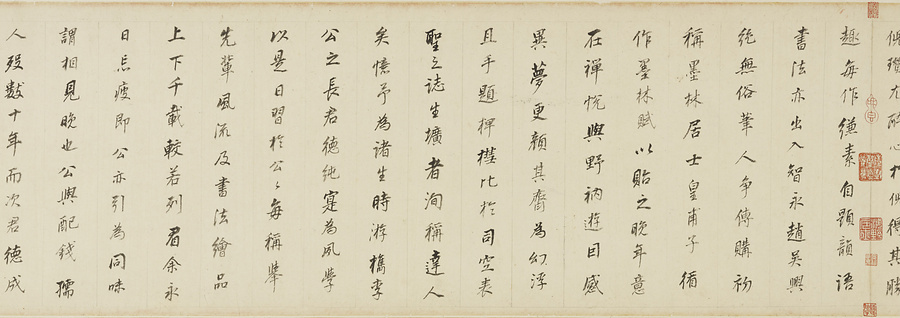 倪瓚尤醉心於倪得其勝
趣每作縑素自題韻語
書法亦出入智永趙吳興
絕無俗筆人爭傳購初
稱墨林居士皇甫子循
作墨林賦以貽之晚年意
在禪悅與野衲遊因感
異夢更顏其齋為幻浮
且手題椑櫬比於司空表
聖之誌生壙者洵稱達人
矣憶予為諸生時游檇李
公之長君德純寔為夙學
以是日習於公〻每稱舉
先輩風流及書法繪品
上下千載較若列眉余永
日忘疲即公亦引為同味
謂相見晚也公與配錢孺
人歿數十年而次君德成